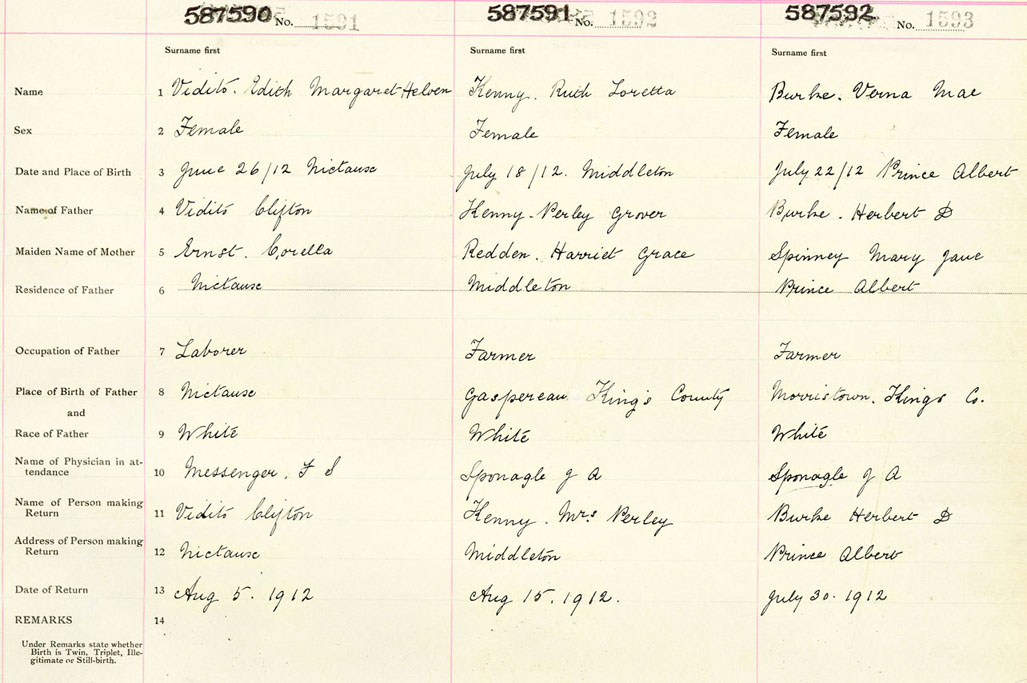 587590 No. 1591 587591 No. 1592 587592 No. 1593
Surname first Surname first Surname first
Name 1 Vidito. Edith Margaret Helven Kenny. Ruth Loretta Burke. Verna Mae
Sex 2 Female Female Female
Date and Place of Birth 3 June 26/12 Nictaux July 18/12. Middleton July 22/12 Prince Albert
Name of Father 4 Vidito Clifton Kenny. Perley Grover Burke. Herbert D
Maiden Name of Mother 5 Ernst. Corella Redden. Harriet Grace Spinney Mary Jane
Residence of Father 6 Nictaux Middleton Prince Albert
Occupation of Father 7 Laborer Farmer Farmer
Place of Birth of Father 8 Nictaux Gaspereau King's County Morristown. Kings Co.
and
Race of Father 9 White White White
Name of Physician in at-
tendance 10 Messenger. F S Sponagle J A Sponagle J A
Name of Person making
Return 11 Vidito Clifton Kenny. Mrs Perley Burke Herbert D
Address of Person making
Return 12 Nictaux Middleton Prince Albert
Date of Return 13 Aug 5. 1912 Aug 15. 1912. July 30. 1912
REMARKS 14
Under Remarks state whether
Birth is Twin, Triplet, Ille-
gitimate or Still-birth.